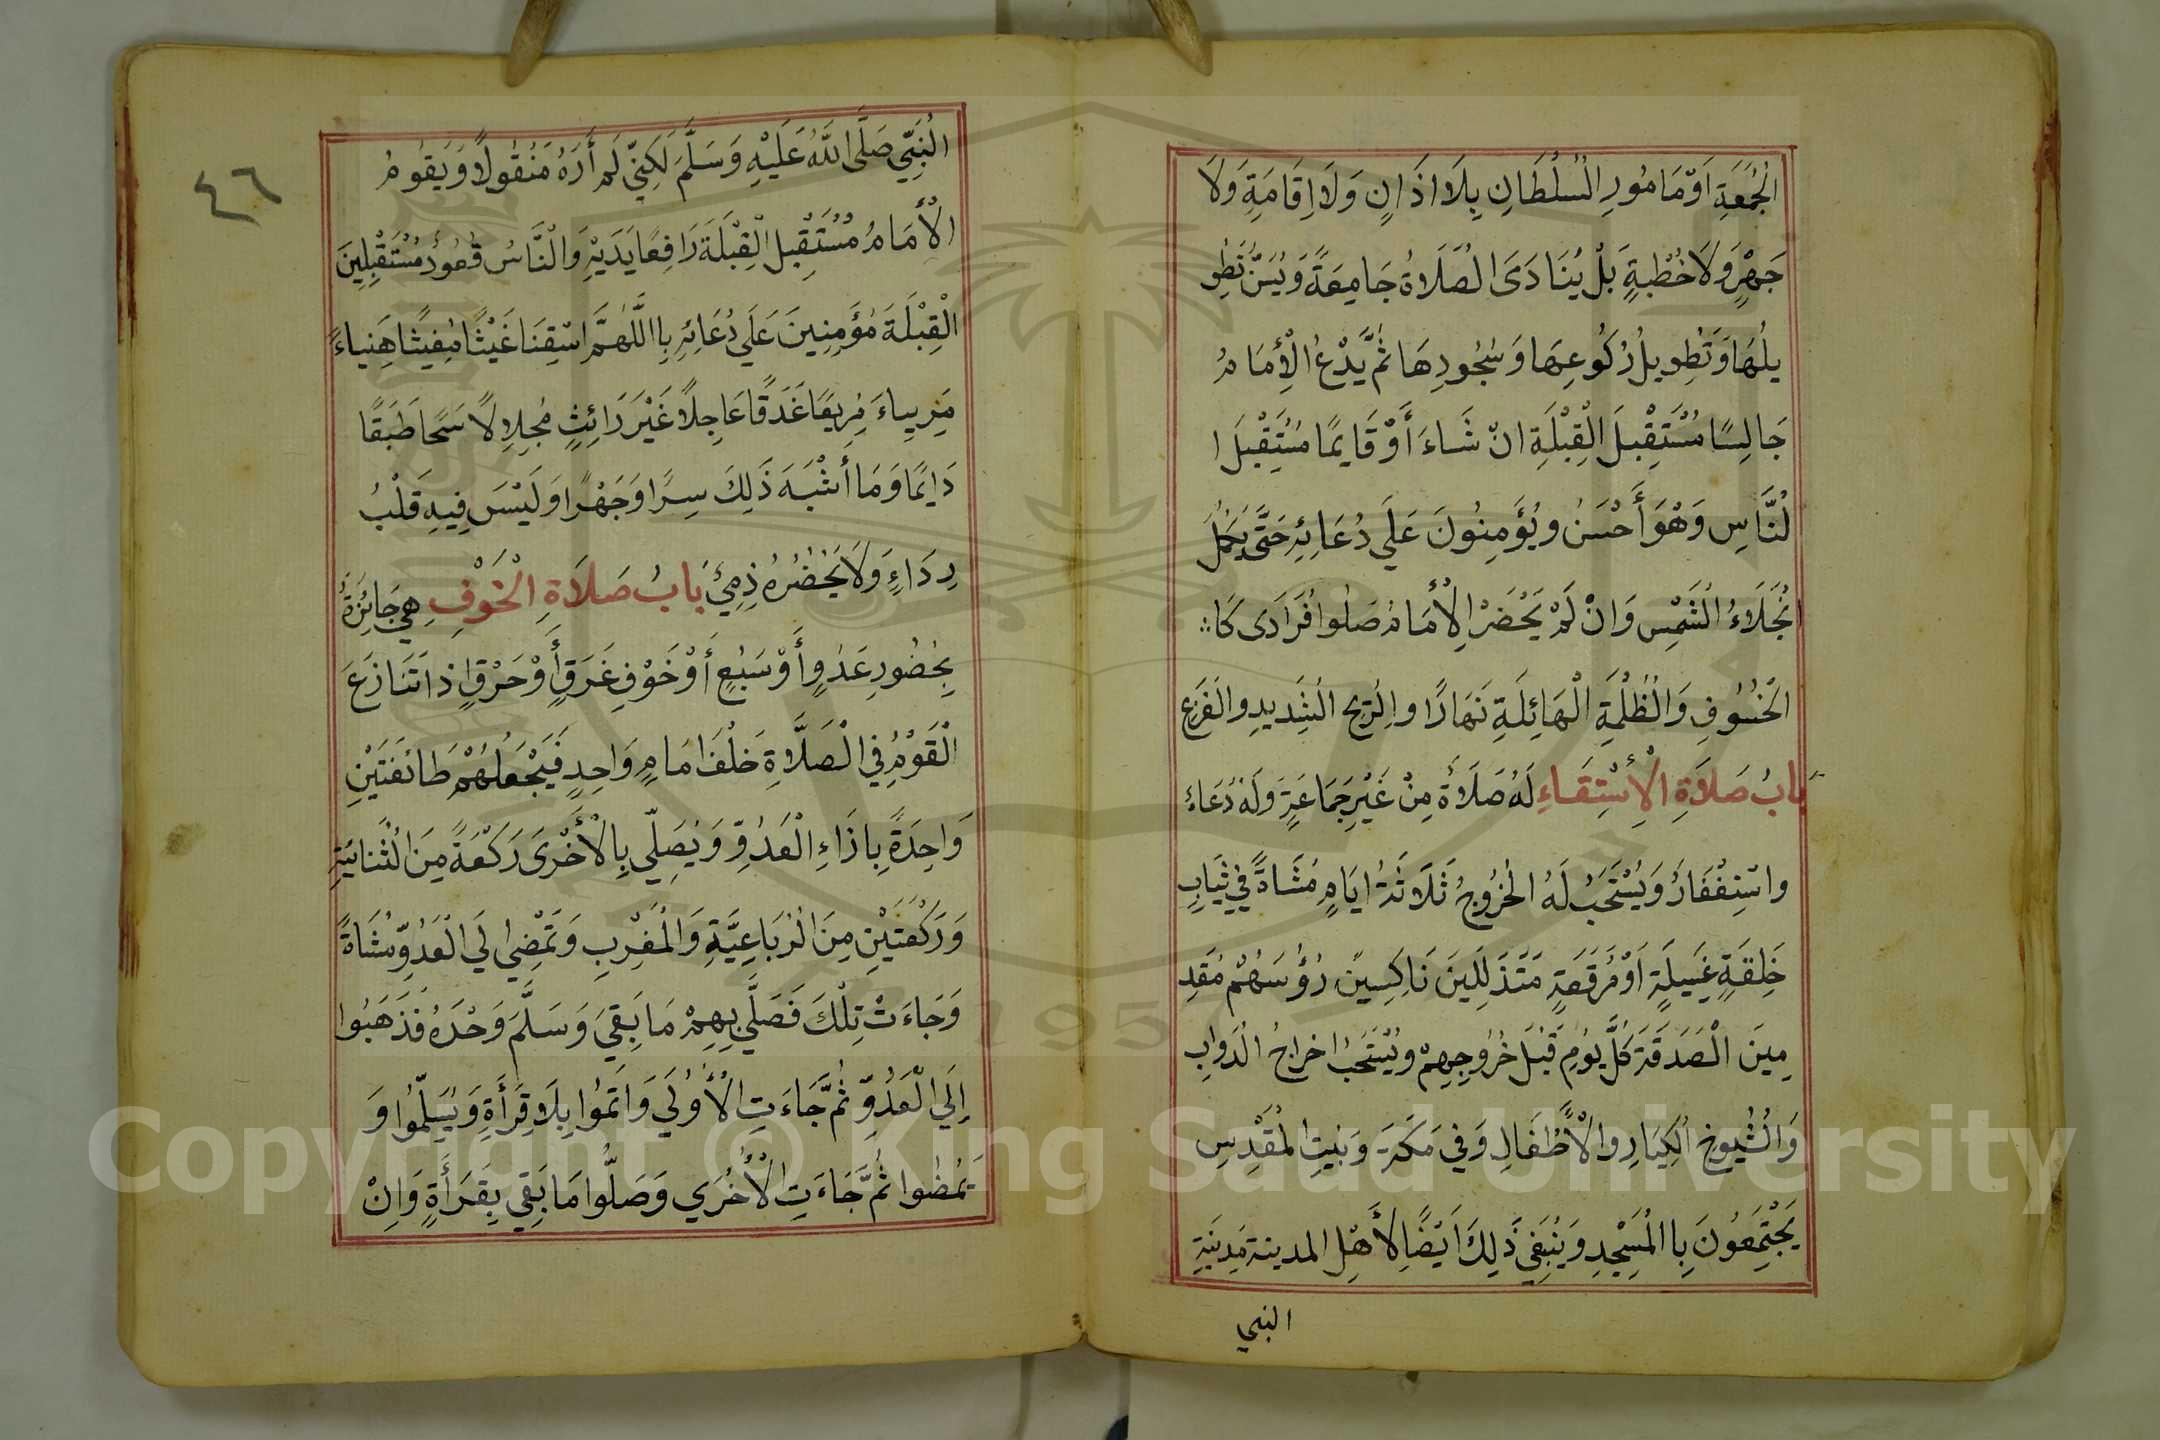 الْجُمُعَةِ اَوْ مَامُورِ السُلْطَانِ بِلَا اذَانٍ وَلَا اِقَامَةِ وَلَا
جَهْرٍ وَلَا خُطْبَةٍ بَلْ يُنَادَى الْصَلَاةُ جَامِعَةً وَيُسَنُّ تَطْوِ
يلُهَا وَتَطْوِيلُ رُكُوعِهَا وَسُجُودِهَا ثُمَّ يَدْعُ الْأِمَامُ
جَالِسًا مُسْتَقْبِلَ الْقِبْلَةِ انْ شَاءَ أَوْ قَايِمًا مُسْتَقْبِلَ ا
لْنَّاسِ وَهُوَ أَحْسَنُ وَيُؤَمِنُونَ عَلَي دُعَائِهِ حَتَّى يَكْمُلَ
انْجَلَاءُ الْشَمْسِ وَانْ لَمْ يَحْضَرْ الْأِمَامُ صَلُوا فُرَادَى كَا
الْخُسُوفِ وَالْظُلْمَةِ الْهَائِلَةِ نَهَارًا والِرّيحِ الشَدِيدِ والْفَزَعِ
بَابُ صَلَاةِ الْأِسْتِسْقَاءِ لَهُ صَلَاةٌ مِنْ غَيْرِ جَمَاعَةٍ وَلَهُ دُعَاءٌ
واسْتِغْفَارٌ وَيُسْتَحَبُ لَهُ الْخُرُوجُ ثَلَاثَةُ ايَامٍ مُشَاةً فِي ثِيَابِ
خَلِقَةٍ غَسِيلَةٍ اَوْ مُرَقَعَةٍ مَتَذَلِلِينَ نَاكِسِينَ رُؤُسَهُمْ مُقَدِ
مِينَ الْصَدَقَةَ كُلَّ يَوْمِ قَبْلَ خُرُوجِهِمْ وَيُسْتَحَبُ اخراجُ الْدَوَابِ
وَالْشُيُوخِ الْكِبَارِ والْأَطْفَالِ وَفِي مَكَةَ وَبَيْتِ الْمُقَدِسِ
يَجْتَمِعُونَ بِاالْمَسْجِدِ وَيَنْبَغِي ذَلِكَ اَيْضًا لِأَهْلِ المدينة مَدِينَةِ
النبي
٤٦
الْنَبِيِّ صَلَّى اللَّهُ عَلَيْهِ وَسَلَّمَ لَكِنِّي لَم أَرَهُ مَنْقُولًا وَيَقُومُ
الْأِمَامُ مُسْتَقْبِلَ الْقِبْلَةَ رَافِعًا يَدَيْهِ وَالْنَّاسُ قُعُودٌ مُسْتَقْبِلِينَ
الْقِبْلَةَ مُؤَمِنِينَ عَلَي دُعَائِهِ بِااللَّهُمَّ اسْقِنَا غَيْثًا مُغِيثًا هَنِياءً
مَرِيياءَ مُرِيعًا غَدَقًا عَاجِلًا غَيْرَ رَائِثٍ مُجَلِلِلًا سَحًا طَبَقًا
دَايمًا وَمَا أَشْبَهَ ذَلِكَ سِرًا وَجَهْرًا وَلَيْسَ فِيهِ قَلْبُ
رِدَاءٍ وَلَا يَحْضُرُهُ ذِمِيٌ بَابُ صَلَاةِ الْخَوْفِ هِيَ جَائِزَةٌ
بِحُضُورِ عَدُوٍ أَوْ سَبُعٍ أَوْ خَوْفِ غَرَقٍ أَوْ حَرْقٍ اِذَا تَنَازَعَ
الْقَوْمُ فِي الْصَلَاةِ خَلْفَ امَامٍ وَاحِدٍ فَيَجْعَلُهُمْ طَائفَتَيْنِ
وَاحِدَةً بِاذَاءِ الْعَدُوِّ وَيُصَلِّي بِالْأُخْرَى رَكْعَةً مِنَ الْثُنائيَةِ
وَرَكْعَتَيْنِ مِنَ الْرُبَاعِيَّةِ وَالْمَغْرِبِ وَتَمْضِي الَي الْعَدُوِّ مُشَاةً
وَجَاءَتْ تِلْكَ فَصَلَّي بِهِمْ مَا بَقِيَ وَسَلَّمَ وَحْدَهُ فَذَهَبُوا
إِلَي الْعَدُوِّ ثُمَّ جَاءَتِ الْأُولَي وَاتَمُوا بِلَا قِرَأَةٍ وَيُسَلِّمُوا وَ
يَمْضُوا ثُمَّ جَاءَتِ الْأُخْرَي وَصَلُّوا مَا بَقِي بِقَرَأَةٍ وَاِنْ
Copyright © King Saud University
1957